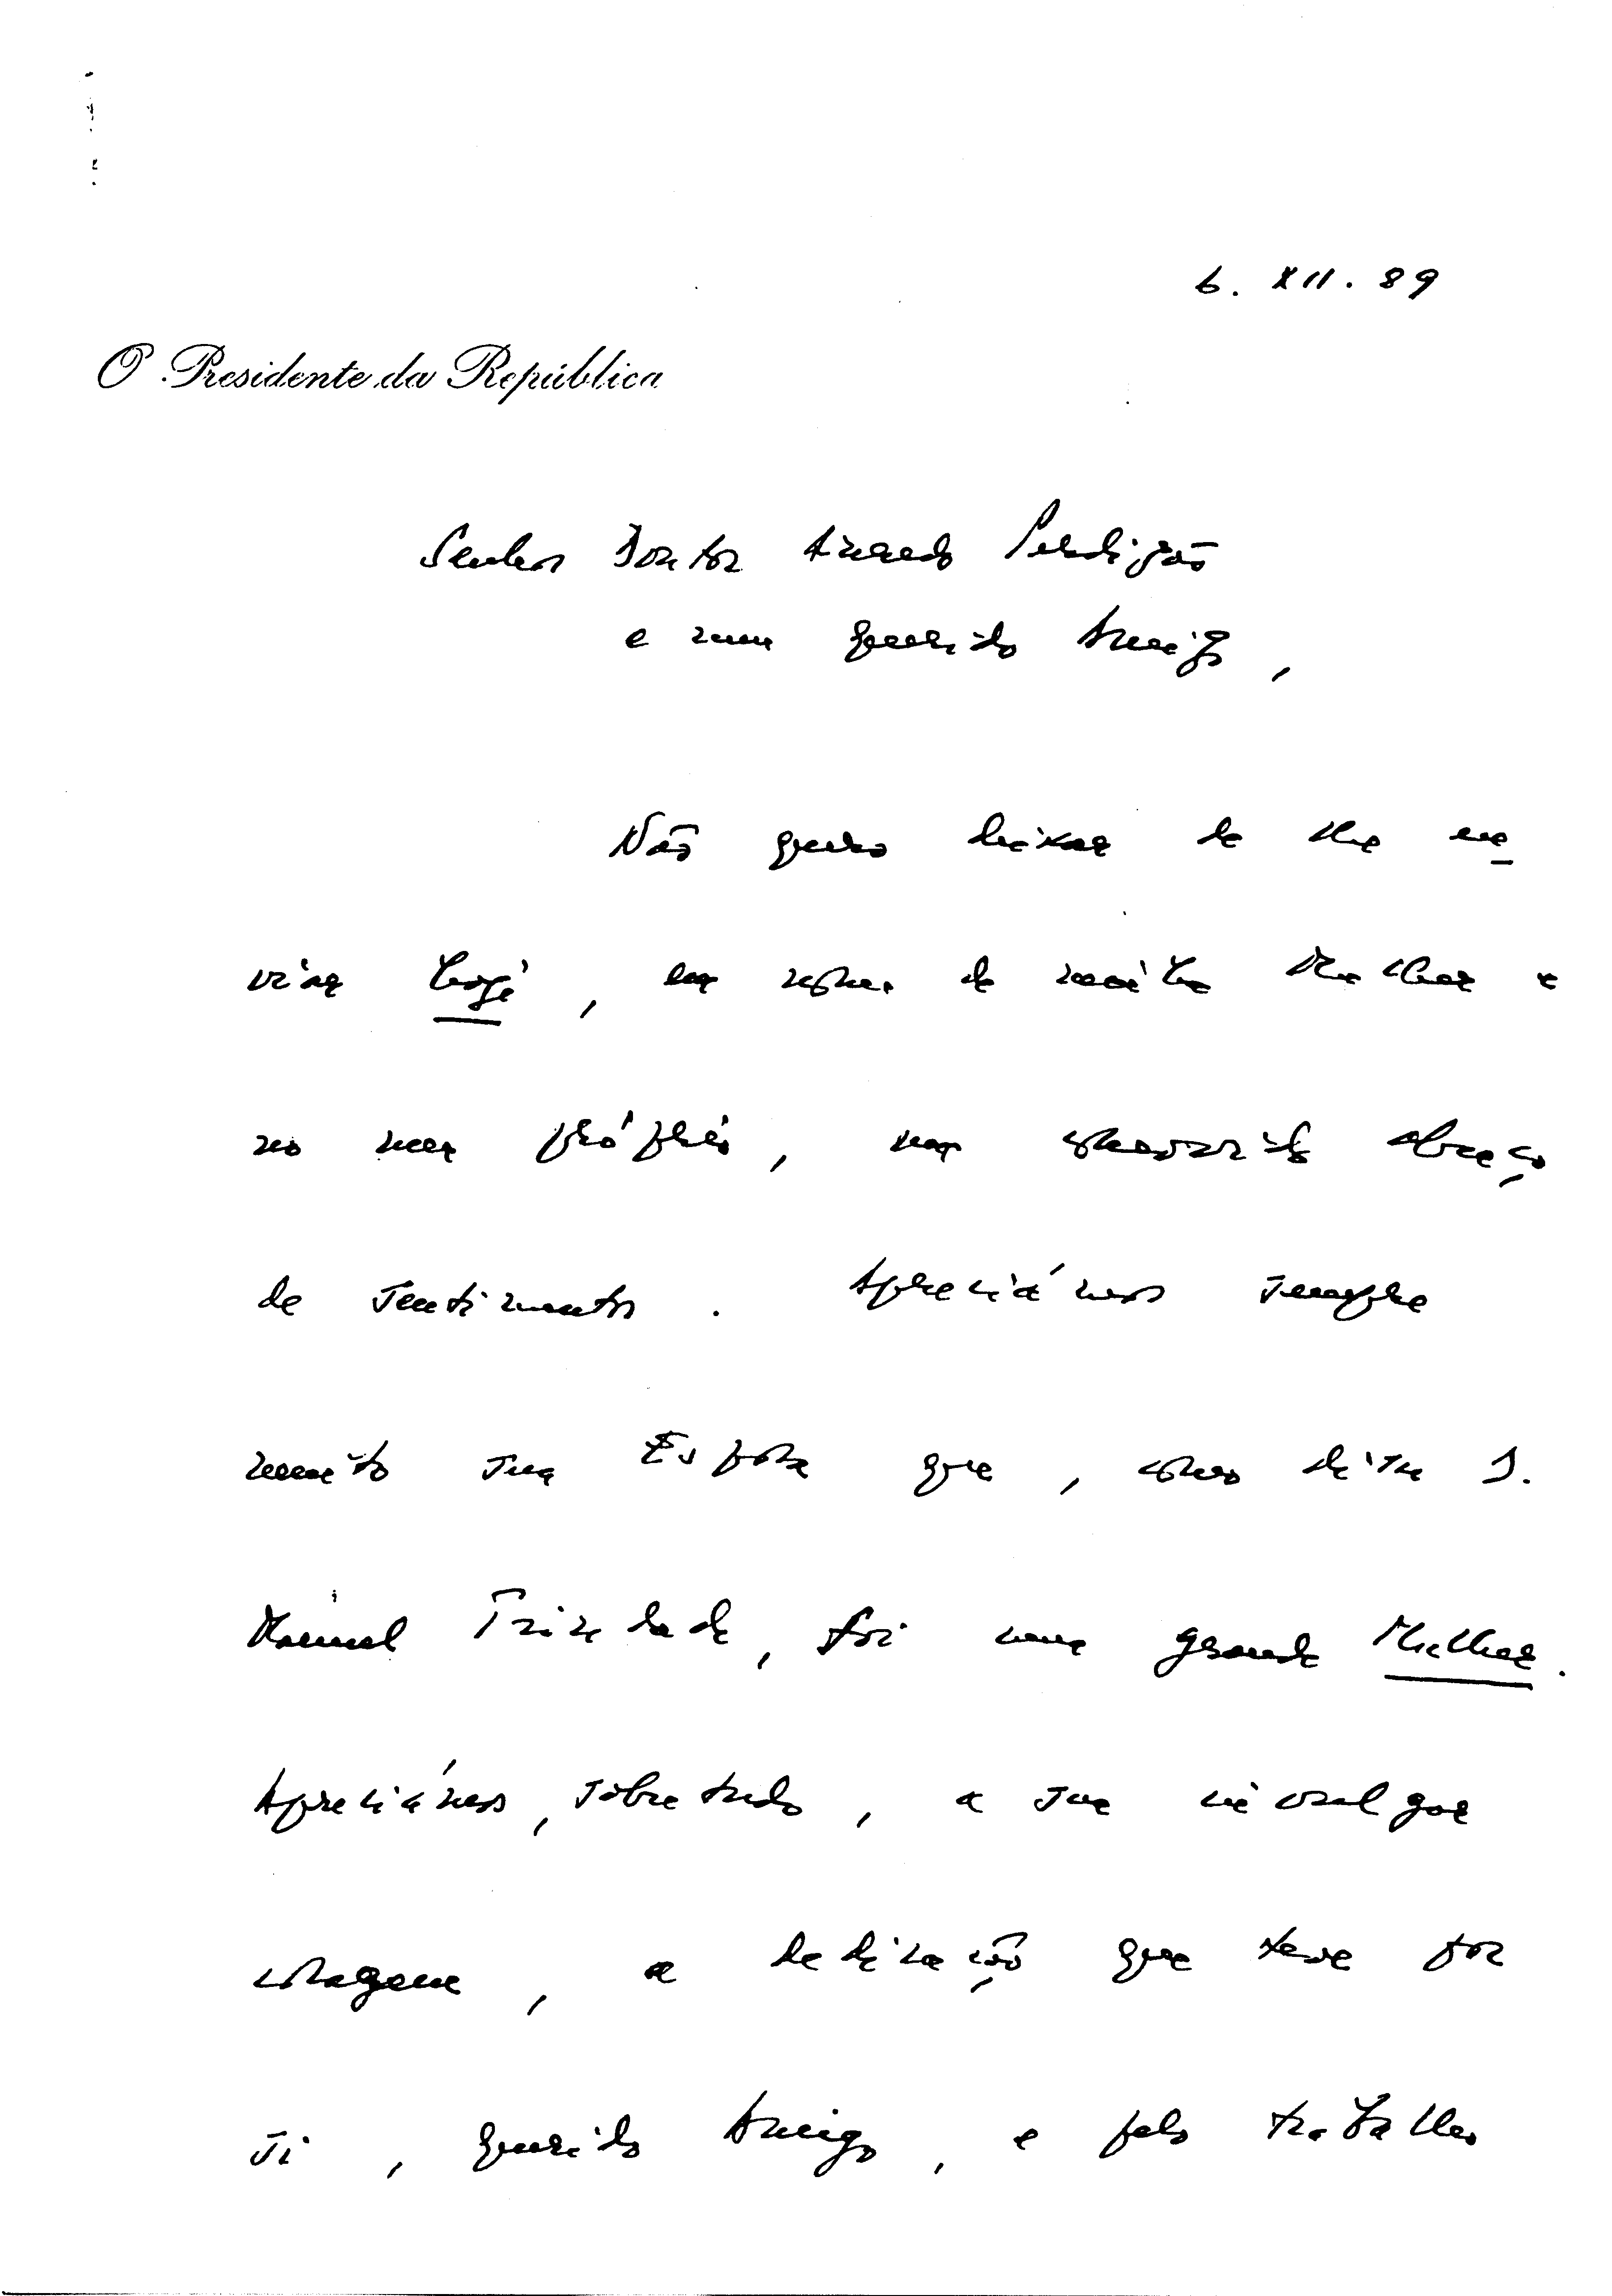 6. XII. 89
O Presidente da República
Senhor Doutor Azeredo Perdigão
e meu querido Amigo,
Não quero deixar de lhe en
viar hoje, em nome de minha Mulher e
no meu próprio, um comovido abraço
de sentimentos. Apreciámos sempre
muito sua Esposa que, como disse o
Manuel Trindade, foi uma grande Mulher.
Apreciámos, sobretudo, a sua invulgar
coragem, a dedicação que teve por
si, querido Amigo, e pelo trabalho